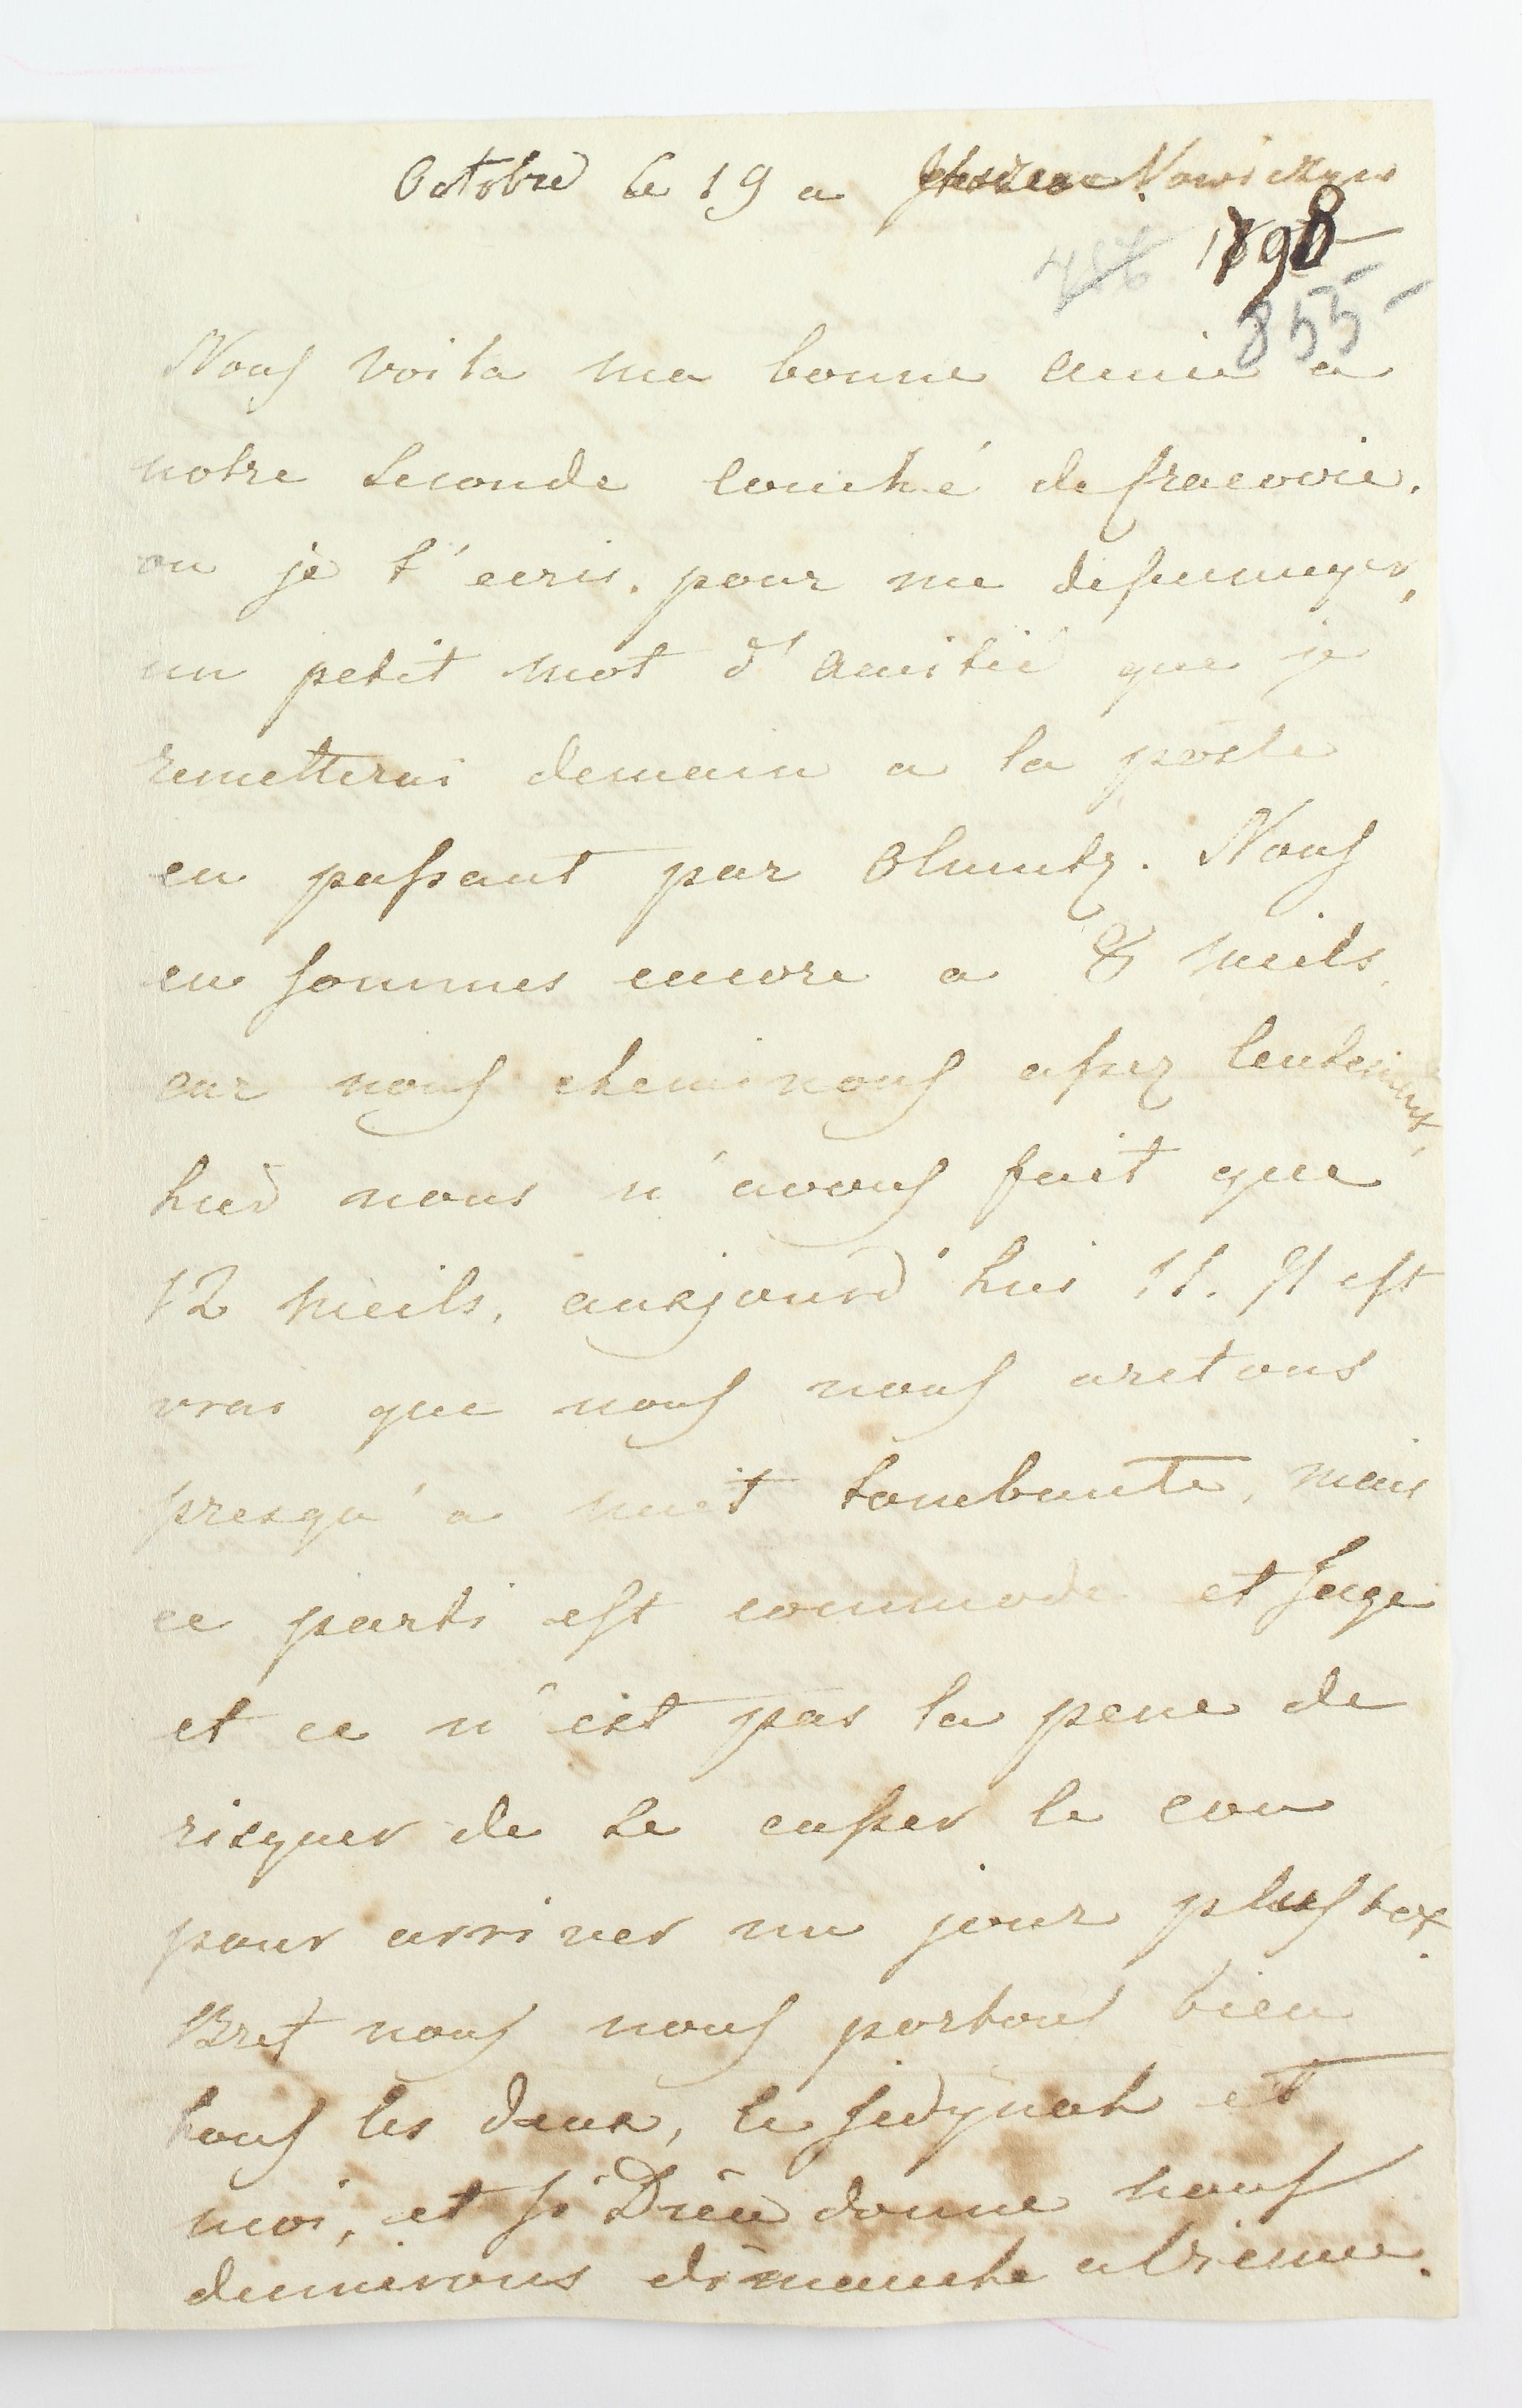 Octobre le 19 a Nowi
1798
855
Nous voila ma bonne amie a
notre seconde couché de Cracovie.
ou je t'ecris. pour me desennuyer,
un petit mot d'amitié que je
remetterai demain a la poste
en passant par Olmutz. Nous
en sommes encore a 8 meils,
car nous cheminons assez lentement,
hier nous n'avons fait que
12 meils, aujourd'hui 11. Il est
vrai que nous nous aretons
presqu'a nuit tombante, mais
ce parti est commode et sage
et ce n'est pas la pene de
risquer de se casser le cou
pour arriver un jour plus tot.
Bref nous nous portons bien
tous les deux, le Jedynak et
moi, et si Dieu donne nous
dinerons dimanche a Vienne.